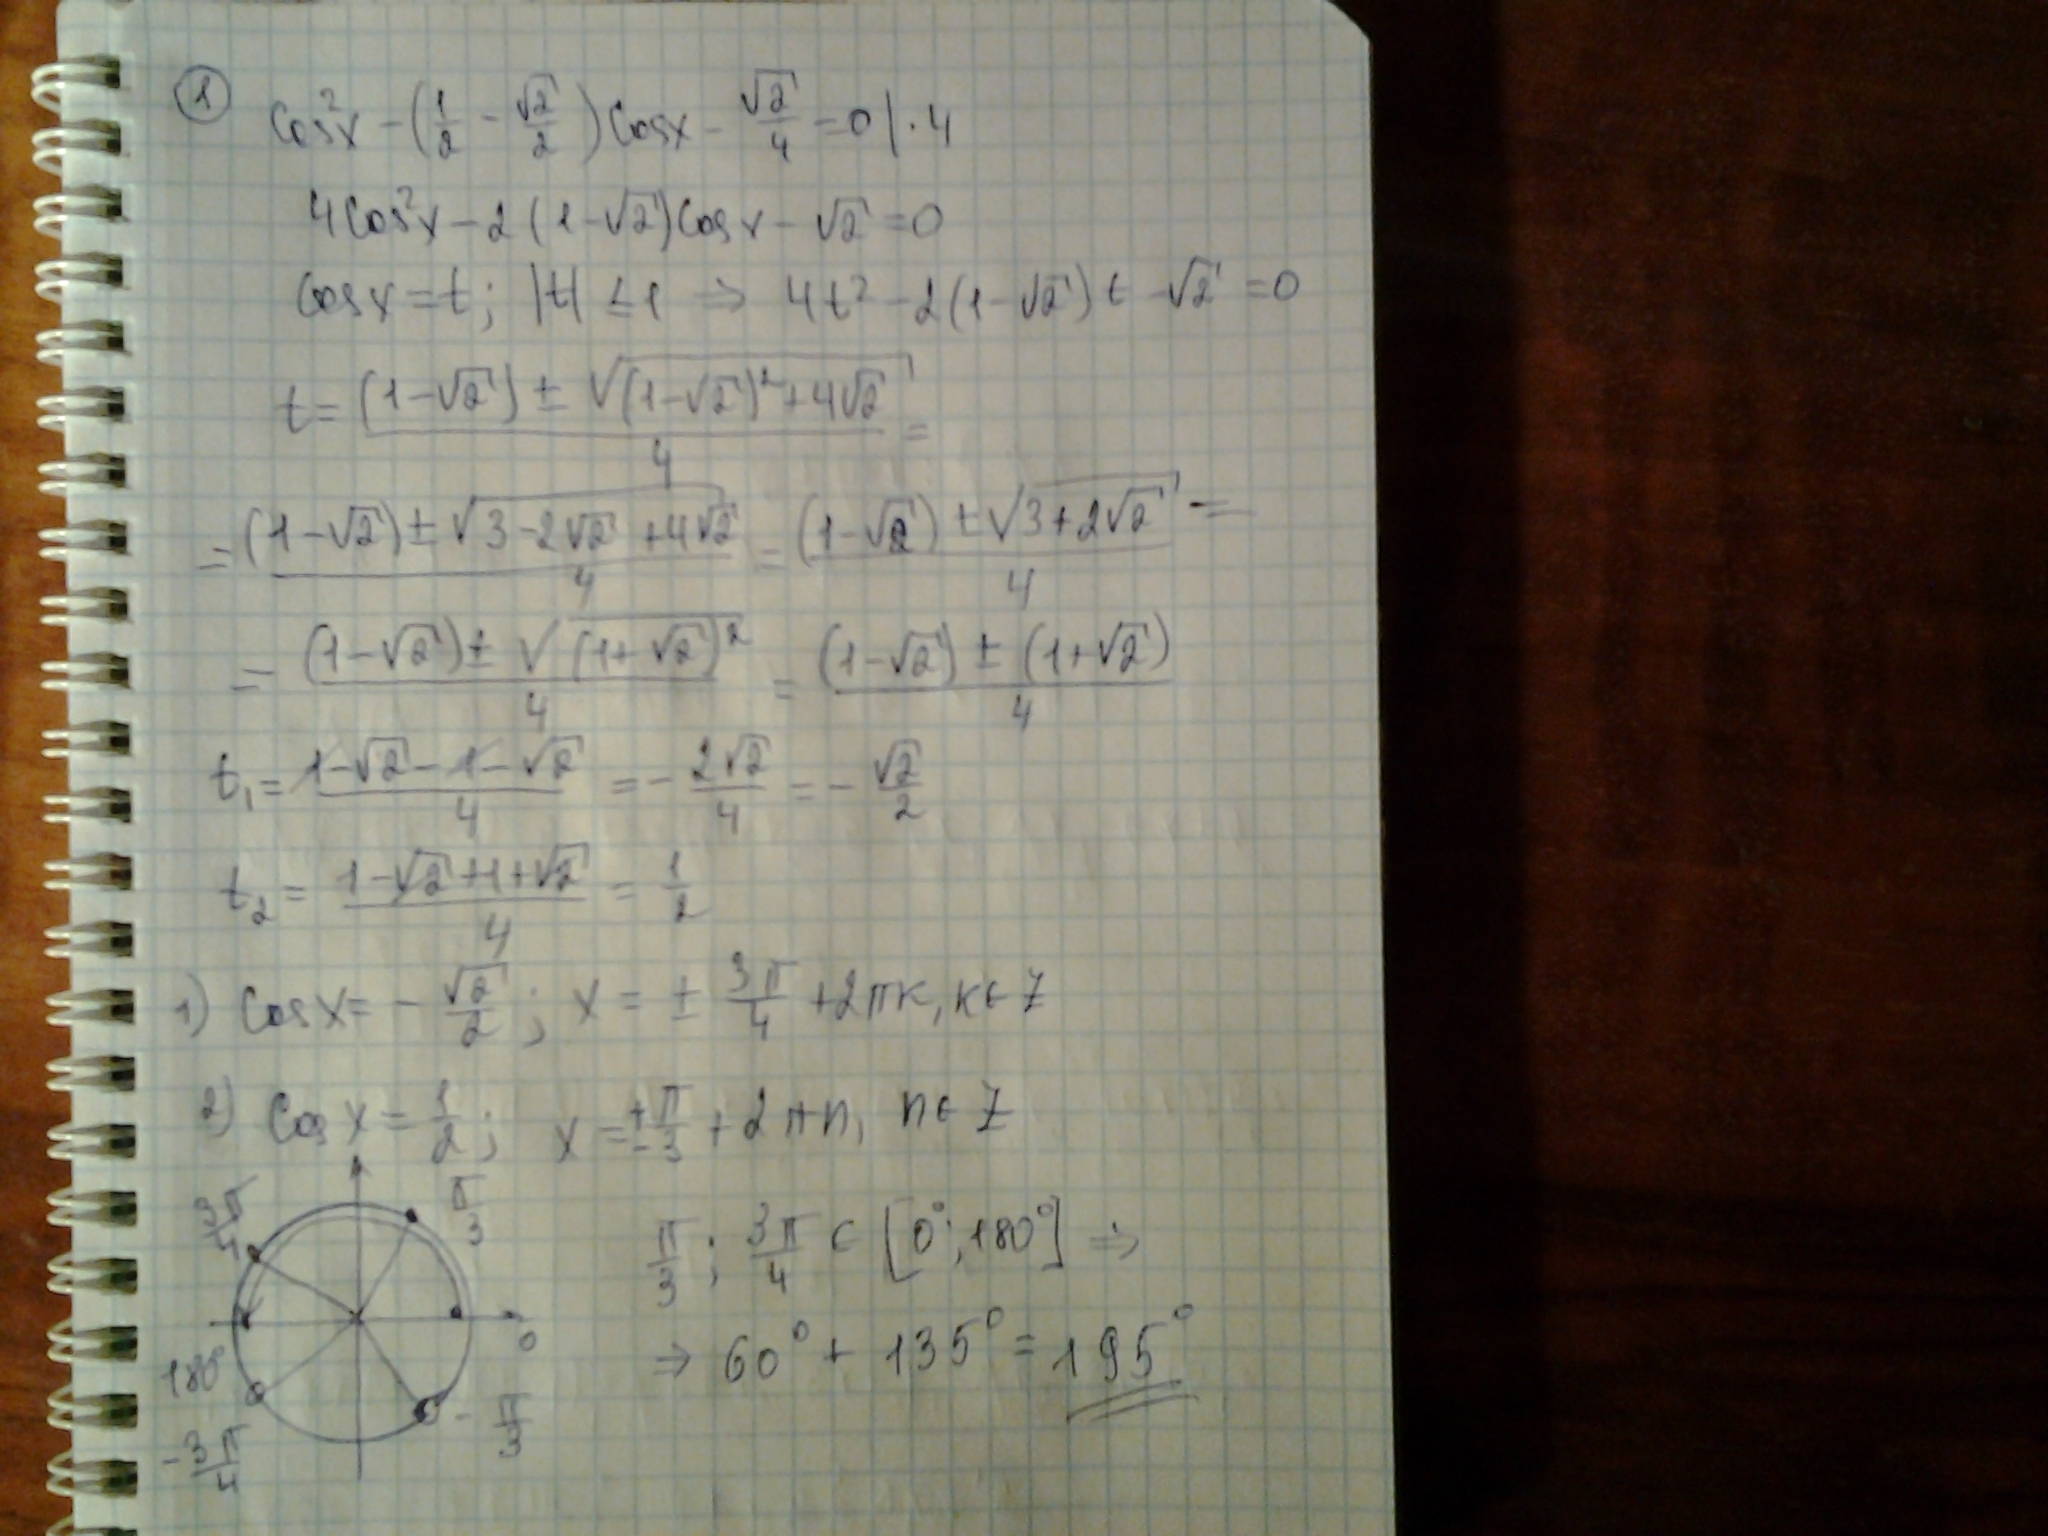 ① cos²x - (1/2 - √2/2) cosx - √2/4 = 0 | · 4
4cos²x - 2(1-√2)cosx - √2 = 0
cosx = t; |t| ≤ 1 ⇒ 4t² - 2(1-√2)t - √2 = 0
t = ((1-√2) ± √((1-√2)² + 4√2))/4 =
= ((1-√2) ± √(3-2√2+4√2))/4 = ((1-√2) ± √(3+2√2))/4 =
= ((1-√2) ± √((1+√2)²))/4 = ((1-√2) ± (1+√2))/4
t₁ = (1-√2-1-√2)/4 = - 2√2/4 = - √2/2
t₂ = (1-√2+1+√2)/4 = 1/2
1) cosx = - √2/2; x = ± 3π/4 + 2πк, к∈Z
2) cosx = 1/2; x = ± π/3 + 2πn, n∈Z
3π/4
π/3
π/3; 3π/4 ∈ [0°; 180°] ⇒
0
180°
⇒ 60° + 135° = 195°
- π/3
-3π/4